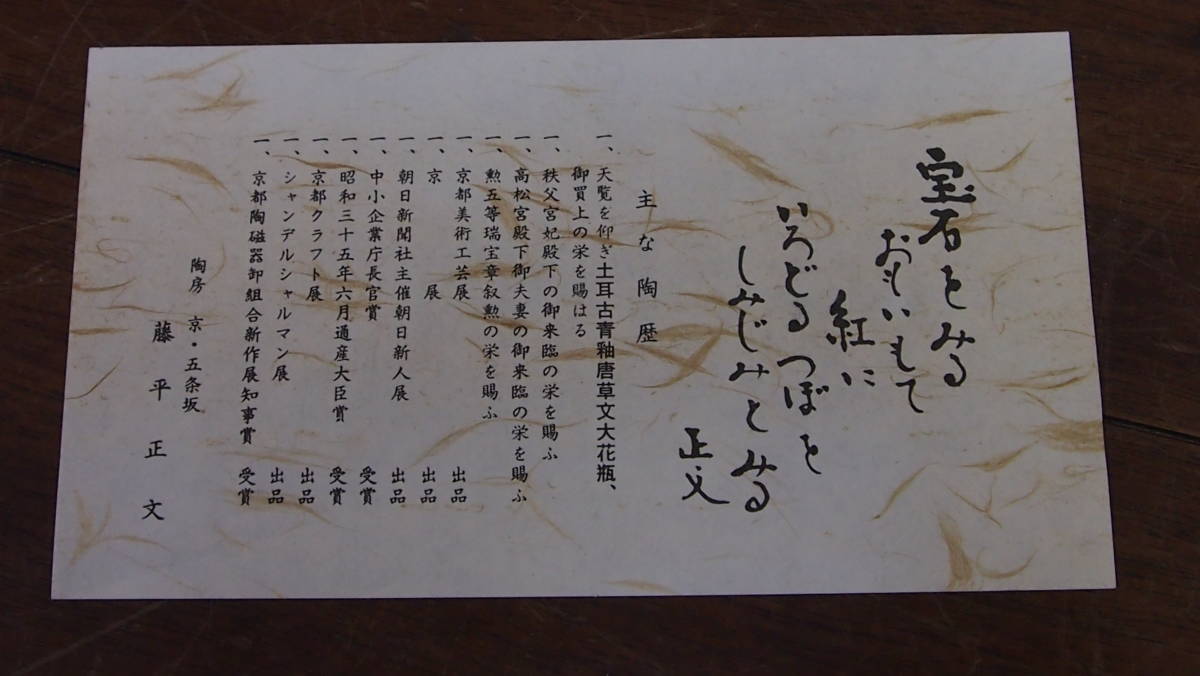 宝石をみる
おもいもて
紅に
いろどるつぼを
しみじみとみる
正文
主な陶歴
一、天覧を仰ぎ土耳古青釉唐草文大花瓶、
御買上の栄を賜はる
一、秩父宮妃殿下の御来臨の栄を賜ふ
一、高松宮殿下御夫妻の御来臨の栄を賜ふ
一、勲五等瑞宝章叙勲の栄を賜ふ
一、京都美術工芸展 出品
一、京展 出品
一、朝日新聞社主催朝日新人展 出品
一、中小企業庁長官賞 受賞
一、昭和三十五年六月通産大臣賞 受賞
一、京都クラフト展 出品
一、シャンデルシャルマン展 出品
一、京都陶磁器卸組合新作展知事賞 受賞
陶房 京・五条坂
藤平正文